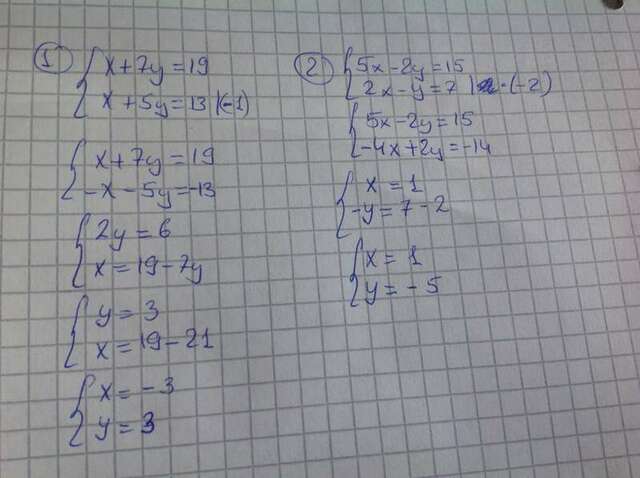 1
x+7y=19
x+5y=13 |(-1)
x+7y=19
-x-5y=-13
2y=6
x=19-7y
y=3
x=19-21
x=-3
y=3
2
5x-2y=15
2x-y=7 | ·(-2)
5x-2y=15
-4x+2y=-14
x=1
-y=7-2
x=1
y=-5